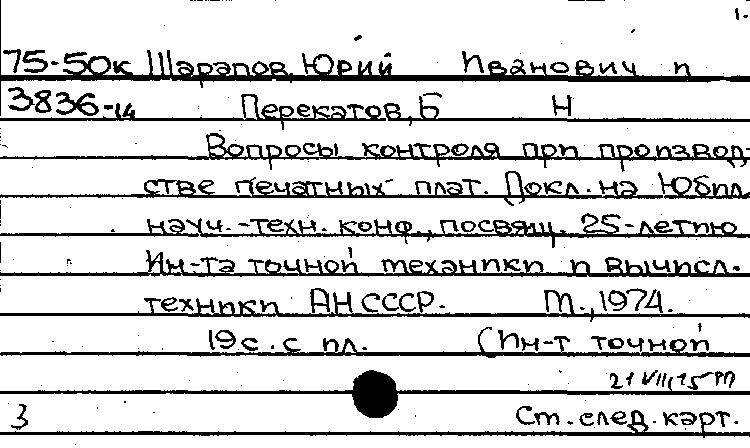 1.
75-50к Шарапов, Юрий Иванович и
3836-14 Перекатов, Б Н
Вопросы контроля при производ-
стве печатных плат. Докл. на Юбил.
науч.-техн. конф., посвящ. 25-летию
Ин-та точной механики и вычисл.
техники АН СССР. М., 1974.
19с. с ил. (Ин-т точной
21 VII 75
3 См. след. карт.